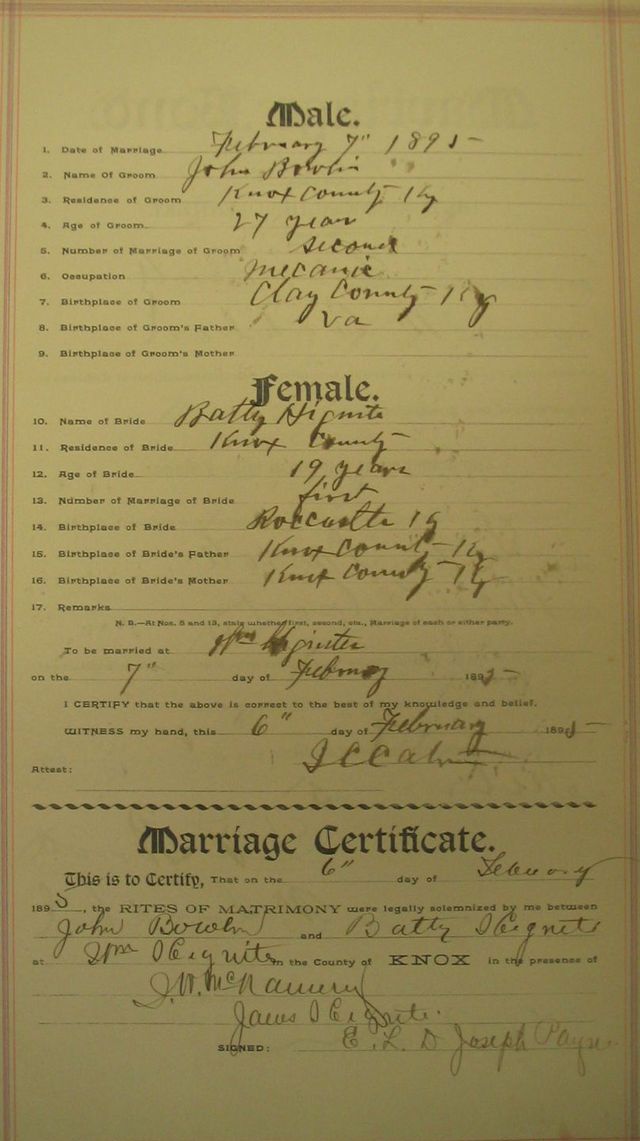 Male.
1. Date of Marriage February 7" 1895
2. Name Of Groom John Bowlin
3. Residence of Groom Knox County Ky
4. Age of Groom 27 year
5. Number of Marriage of Groom second
6. Occupation Mecanic
7. Birthplace of Groom Clay County Ky
8. Birthplace of Groom's Father Va
9. Birthplace of Groom's Mother
Female.
10. Name of Bride Batty Hignite
11. Residence of Bride Knox County
12. Age of Bride 19 years
13. Number of Marriage of Bride first
14. Birthplace of Bride Ky
15. Birthplace of Bride's Father Knox County Ky
16. Birthplace of Bride's Mother Knox County Ky
17. Remarks
N. B.—At Nos. 5 and 13, state whether first, second, etc., Marriage of each or either party.
To be married at Wm Hignites
on the 7" day of February 1895
I CERTIFY that the above is correct to the best of my knowledge and belief.
WITNESS my hand, this 6" day of February 1895
J C
Attest:
Marriage Certificate.
This is to Certify, That on the 6" day of
1895, the RITES OF MATRIMONY were legally solemnized by me between
John Bowlin and Batty Hignite
at Wm Hignite in the County of KNOX in the presence of
Hignite.
SIGNED: E. L. D Joseph Payne